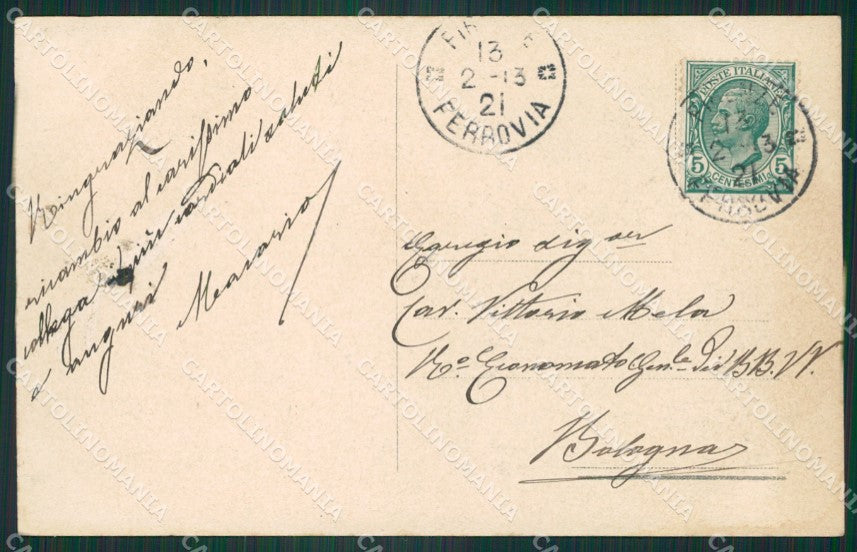 Ringraziando,
ricambio al carissimo
collega i più cordiali saluti
e auguri
Macario
13
2-13
21
FERROVIA
POSTE ITALIANE
5 CENTESIMI 5
Egregio Sig.or
Cav. Vittorio Mela
R.o Economato Gen.le dei BB. VV.
Bologna
CARTOLINOMANIA